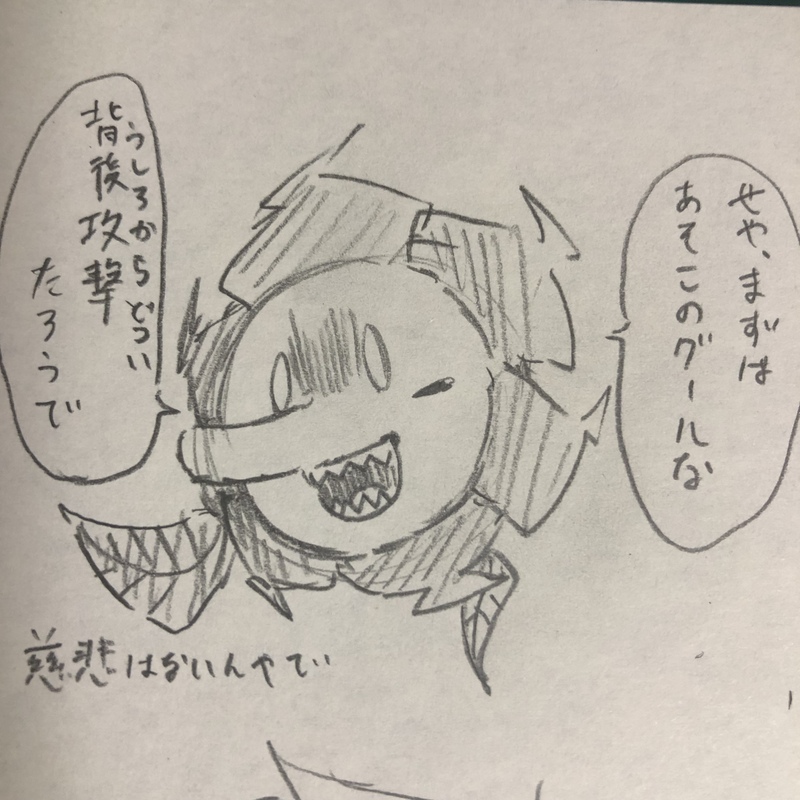 せや、まずは
あそこのグールな
うしろからどつい
背後攻撃
たろうで
慈悲はないんやで